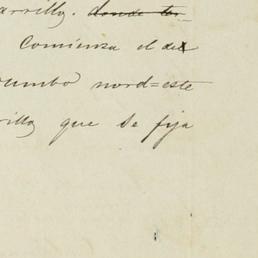 arrillo. donde ter-
Comienza el del
rumbo nord=este
rillo que se fija